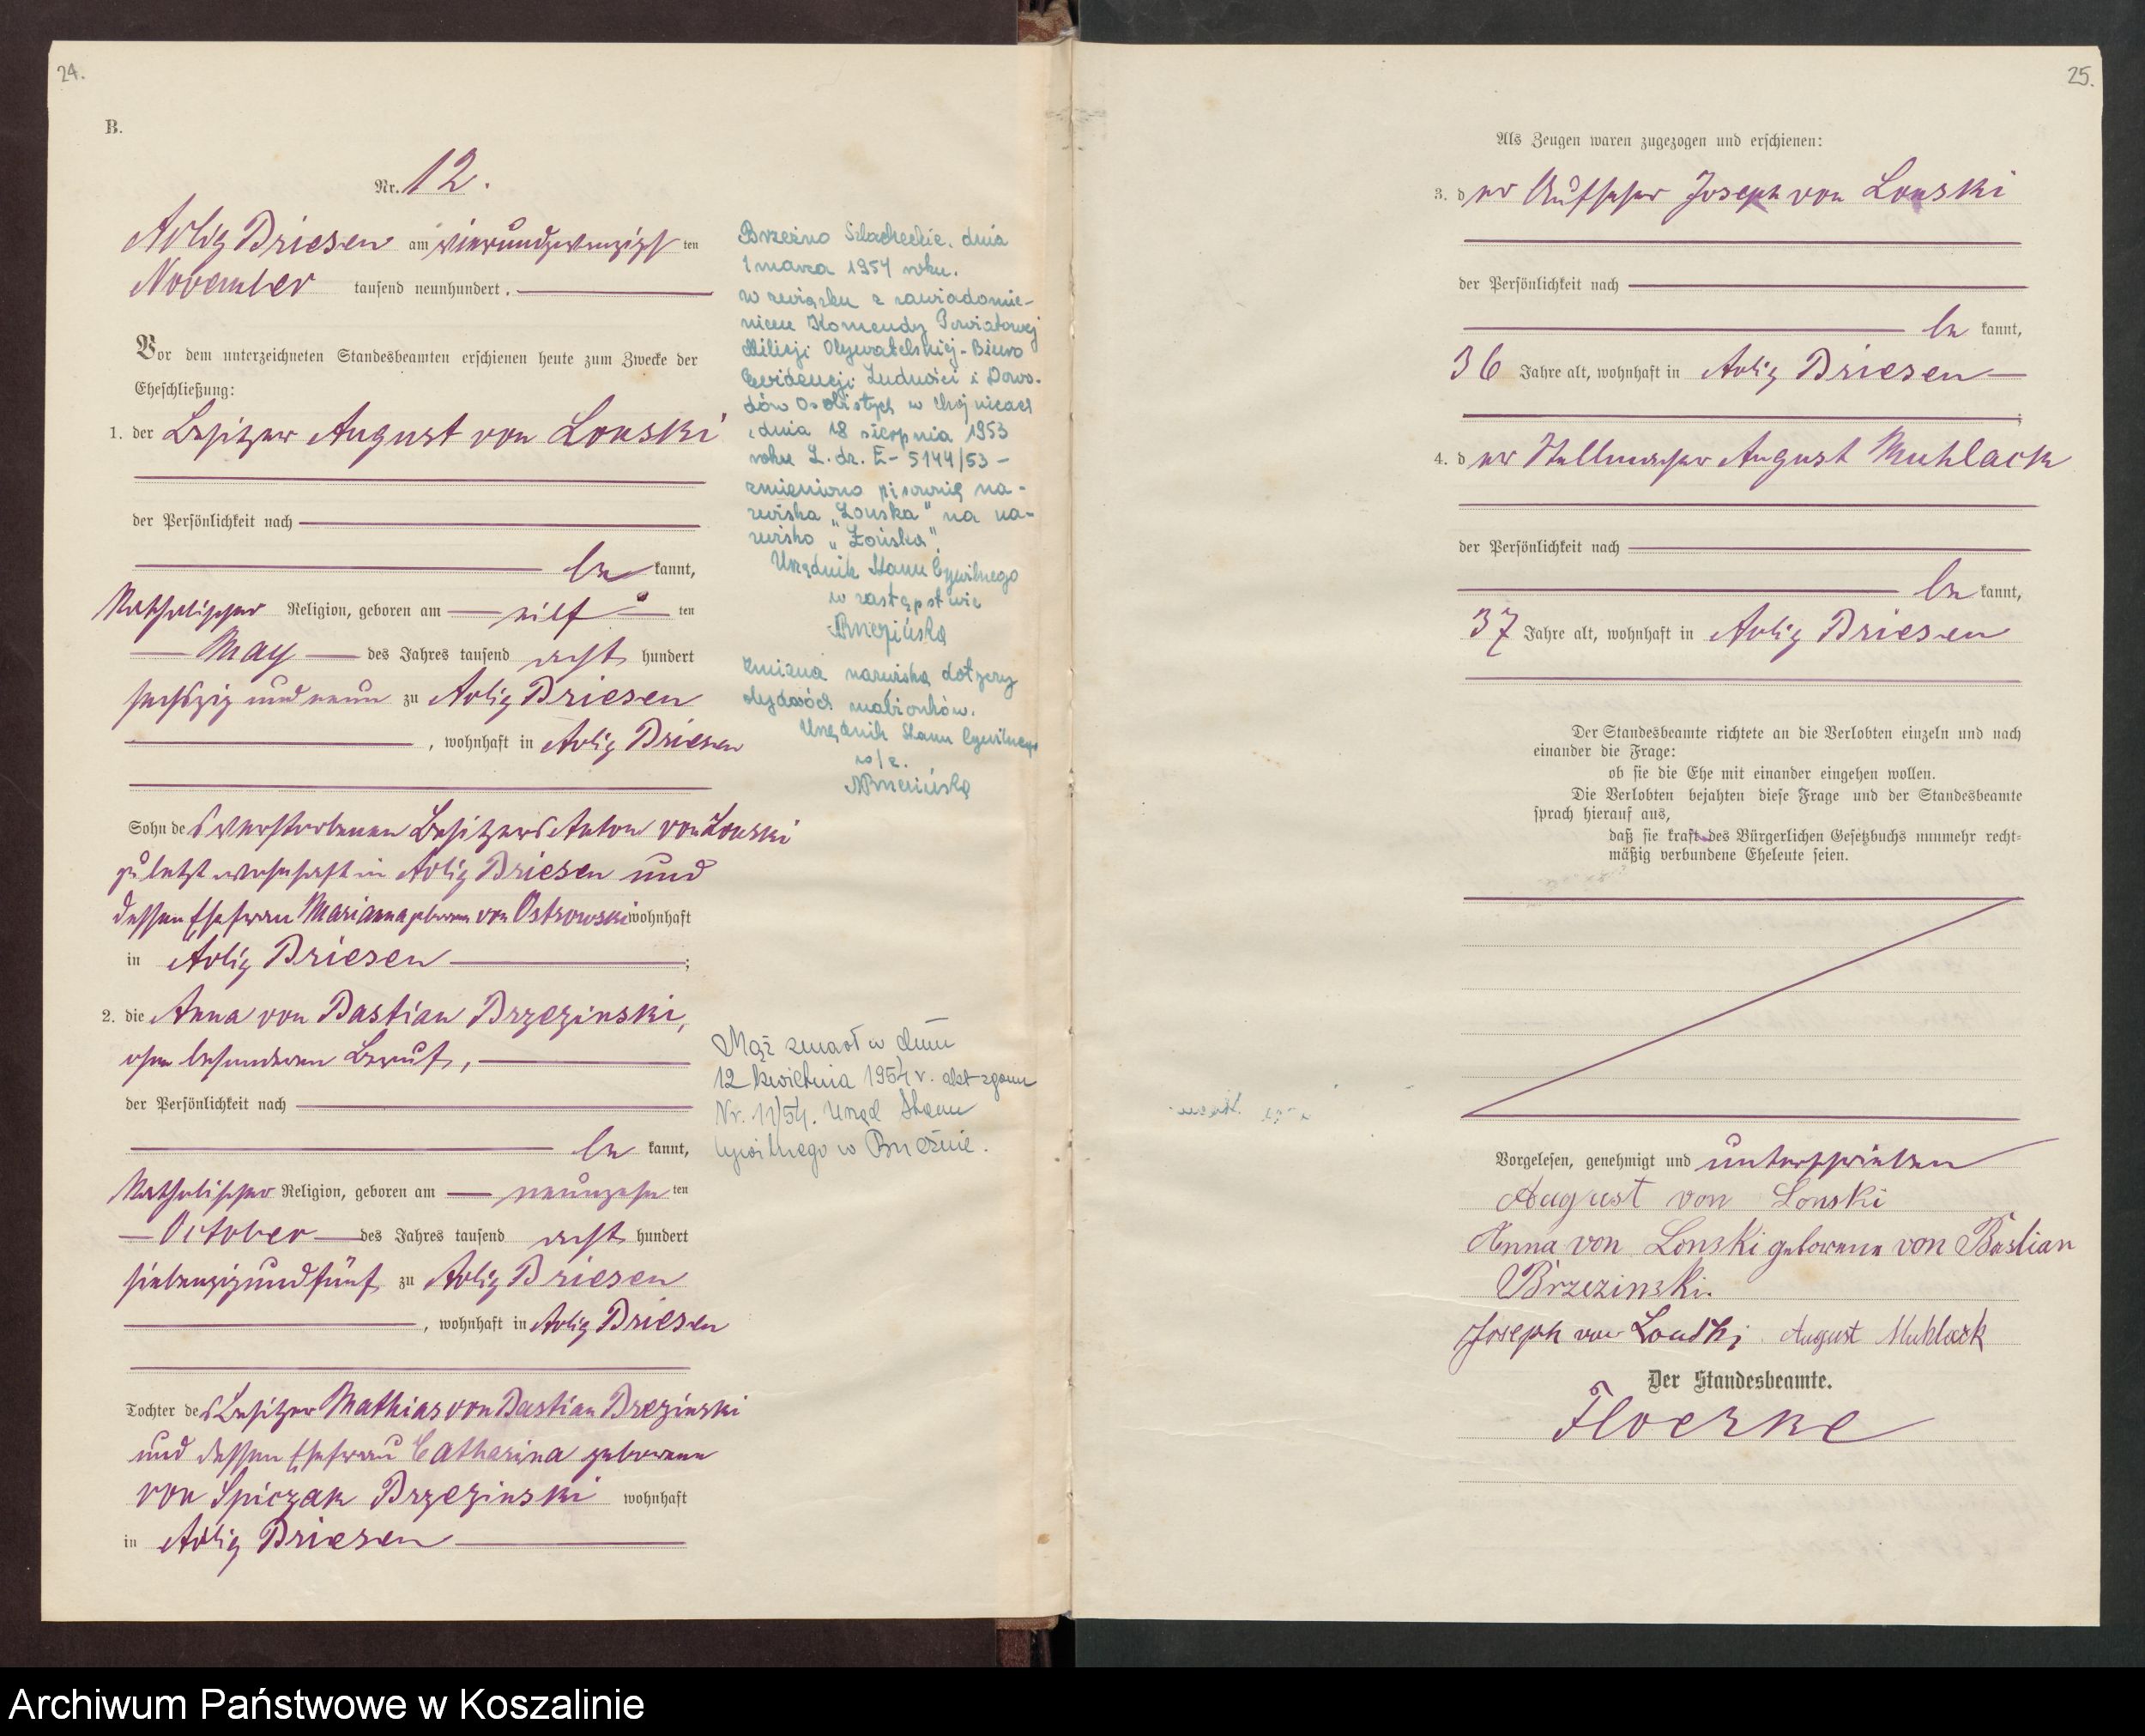 24.
B.
Nr. 12.
Adlig Briesen am vierundzwanzigsten
November tausend neunhundert.
Vor dem unterzeichneten Standesbeamten erschienen heute zum Zwecke der
Eheschließung:
1. der Besitzer August von Lonski
der Persönlichkeit nach
bekannt,
katholischer Religion, geboren am elften
May des Jahres tausend acht hundert
sechszig und neun zu Adlig Briesen
, wohnhaft in Adlig Briesen
Sohn des verstorbenen Besitzers Anton von Lonski
zuletzt wohnhaft in Adlig Briesen und
dessen Ehefrau Marianna geborenen von Ostrowski wohnhaft
in Adlig Briesen ;
2. die Anna von Bastian Brzezinski,
ohne besonderen Beruf,
der Persönlichkeit nach
bekannt,
katholischer Religion, geboren am neunzehnten
October des Jahres tausend acht hundert
siebenzig und fünf zu Adlig Briesen
, wohnhaft in Adlig Briesen
Tochter des Besitzer Mathias von Bastian Brezinski
und dessen Ehefrau Catharina geborene
von Spiczak Brzezinski wohnhaft
in Adlig Briesen
Brzeźno Szlacheckie, dnia
1 marca 1954 roku.
w związku z zawiadomie-
niem Komendy Powiatowej
Milicji Obywatelskiej - Biuro
Ewidencji Ludności i Dowo-
dów Osobistych w Chojnicach
z dnia 18 sierpnia 1953
roku L. dz. E - 5144/53 -
zmieniono pisownię na-
zwiska "Lonska" na na-
zwisko "Łońska".
Urzędnik Stanu Cywilnego
w zastępstwie
Brzezińska
Zmiana nazwiska dotyczy
obydwóch małżonków.
Urzędnik Stanu Cywilnego
w/z.
Brzezińska
Mąż zmarł w dniu
12 kwietnia 1954 r. akt zgonu
Nr. 11/54. Urząd Stanu
Cywilnego w Brzeźnie.
25.
Als Zeugen waren zugezogen und erschienen:
3. der Aufseher Joseph von Lonski
der Persönlichkeit nach
bekannt,
36 Jahre alt, wohnhaft in Adlig Briesen
;
4. der Stellmacher August Muhlack
der Persönlichkeit nach
bekannt,
37 Jahre alt, wohnhaft in Adlig Briesen
Der Standesbeamte richtete an die Verlobten einzeln und nach
einander die Frage:
ob sie die Ehe mit einander eingehen wollen.
Die Verlobten bejahten diese Frage und der Standesbeamte
sprach hierauf aus,
daß sie kraft des Bürgerlichen Gesetzbuchs nunmehr recht-
mäßig verbundene Eheleute seien.
Vorgelesen, genehmigt und unterschrieben
August von Lonski
Anna von Lonski geborene von Bastian
Brzezinski.
Joseph von Lonski August Muhlack
Der Standesbeamte.
Floerke
Archiwum Państwowe w Koszalinie